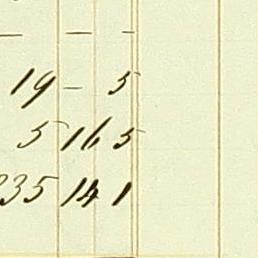 — — —
19 — 5
5 16 5
235 14 1